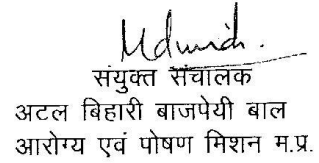 संयुक्त संचालक
अटल बिहारी बाजपेयी बाल
आरोग्य एवं पोषण मिशन म.प्र.